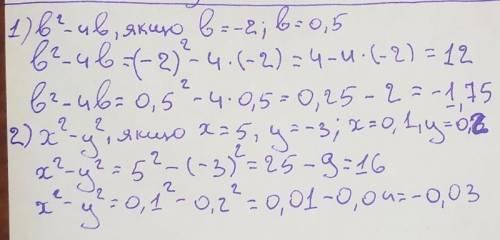 1) в²-4в, якщо в=-2; в=0,5
в²-4в=(-2)²-4·(-2)=4-4·(-2)=12
в²-4в=0,5²-4·0,5=0,25-2=-1,75
2) x²-y², якщо x=5, y=-3; x=0,1, y=0,2
x²-y²=5²-(-3)²=25-9=16
x²-y²=0,1²-0,2²=0,01-0,04=-0,03